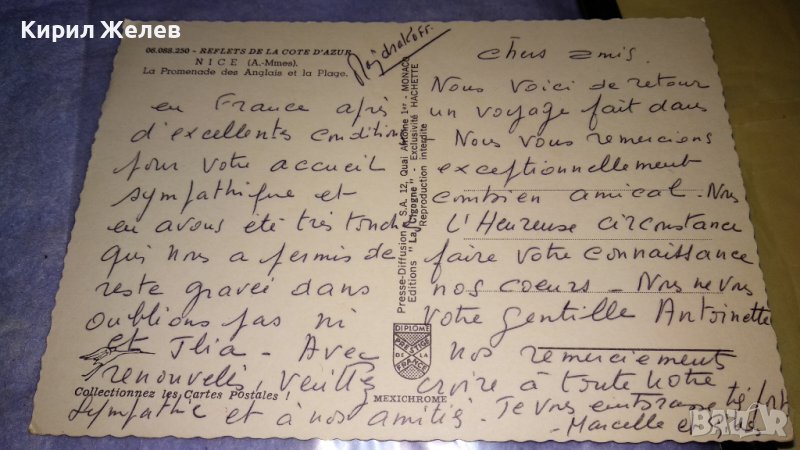 Кирил Желев
06.088.250 - REFLETS DE LA COTE D'AZUR
NICE (A.-Mmes).
La Promenade des Anglais et la Plage.
Chers amis.
Nous voici de retour
en France après
un voyage fait dans
d'excellentes conditions
Nous vous remercions
pour votre accueil
exceptionnellement
sympathique et
combien amical. Nous
en avons été très touchés
L'Heureuse circonstance
qui nous a permis de
faire votre connaissance
reste gravée dans
nos coeurs - Nous ne vous
oublions pas ni
votre gentille Antoinette
et Ilia - Avec
nos remerciements
renouvelés, veuillez
croire à toute notre
sympathie et à nos amitiés. Je vous embrasse très fort
- Marcelle et
Presse-Diffusion S.A. 12, Quai Antoine 1er - MONACO
Editions "La Cigogne" - Exclusivité HACHETTE
Reproduction interdite
DIPLOME
PRESTIGE
DE LA
FRANCE
MEXICHROME
Collectionnez les Cartes Postales !
Bazar